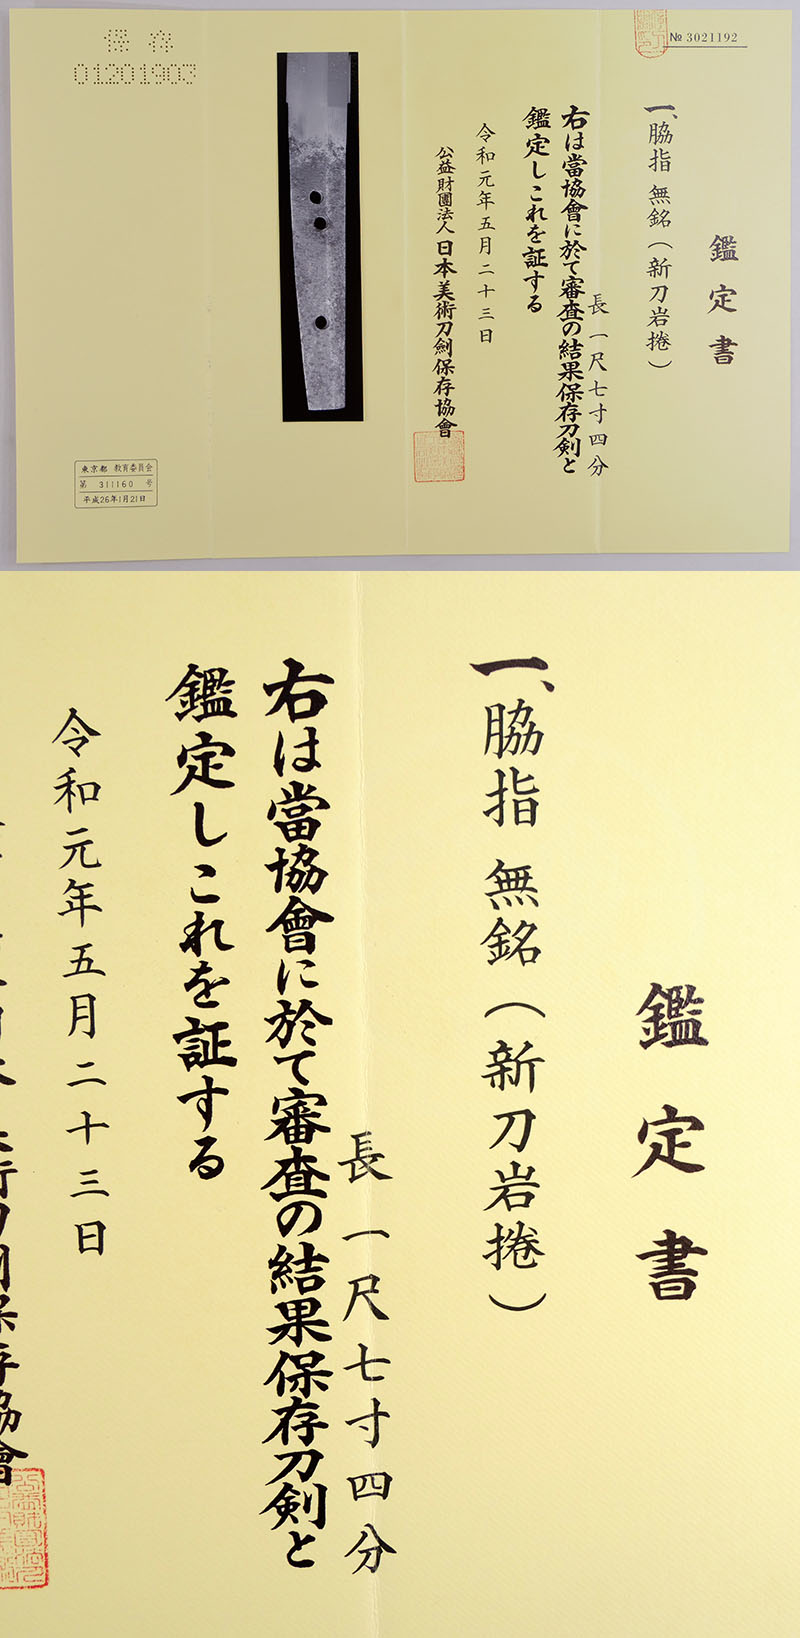 № 3021192
鑑定書
一、脇指 無銘（新刀岩捲）
長 一尺七寸四分
右は當協會に於て審査の結果保存刀剣と
鑑定しこれを証する
令和元年五月二十三日
公益財團法人 日本美術刀劍保存協會
保存
01201903
東京都 教育委員会
第 311160 号
平成26年1月21日
鑑定書
一、脇指 無銘（新刀岩捲）
長 一尺七寸四分
右は當協會に於て審査の結果保存刀剣と
鑑定しこれを証する
令和元年五月二十三日